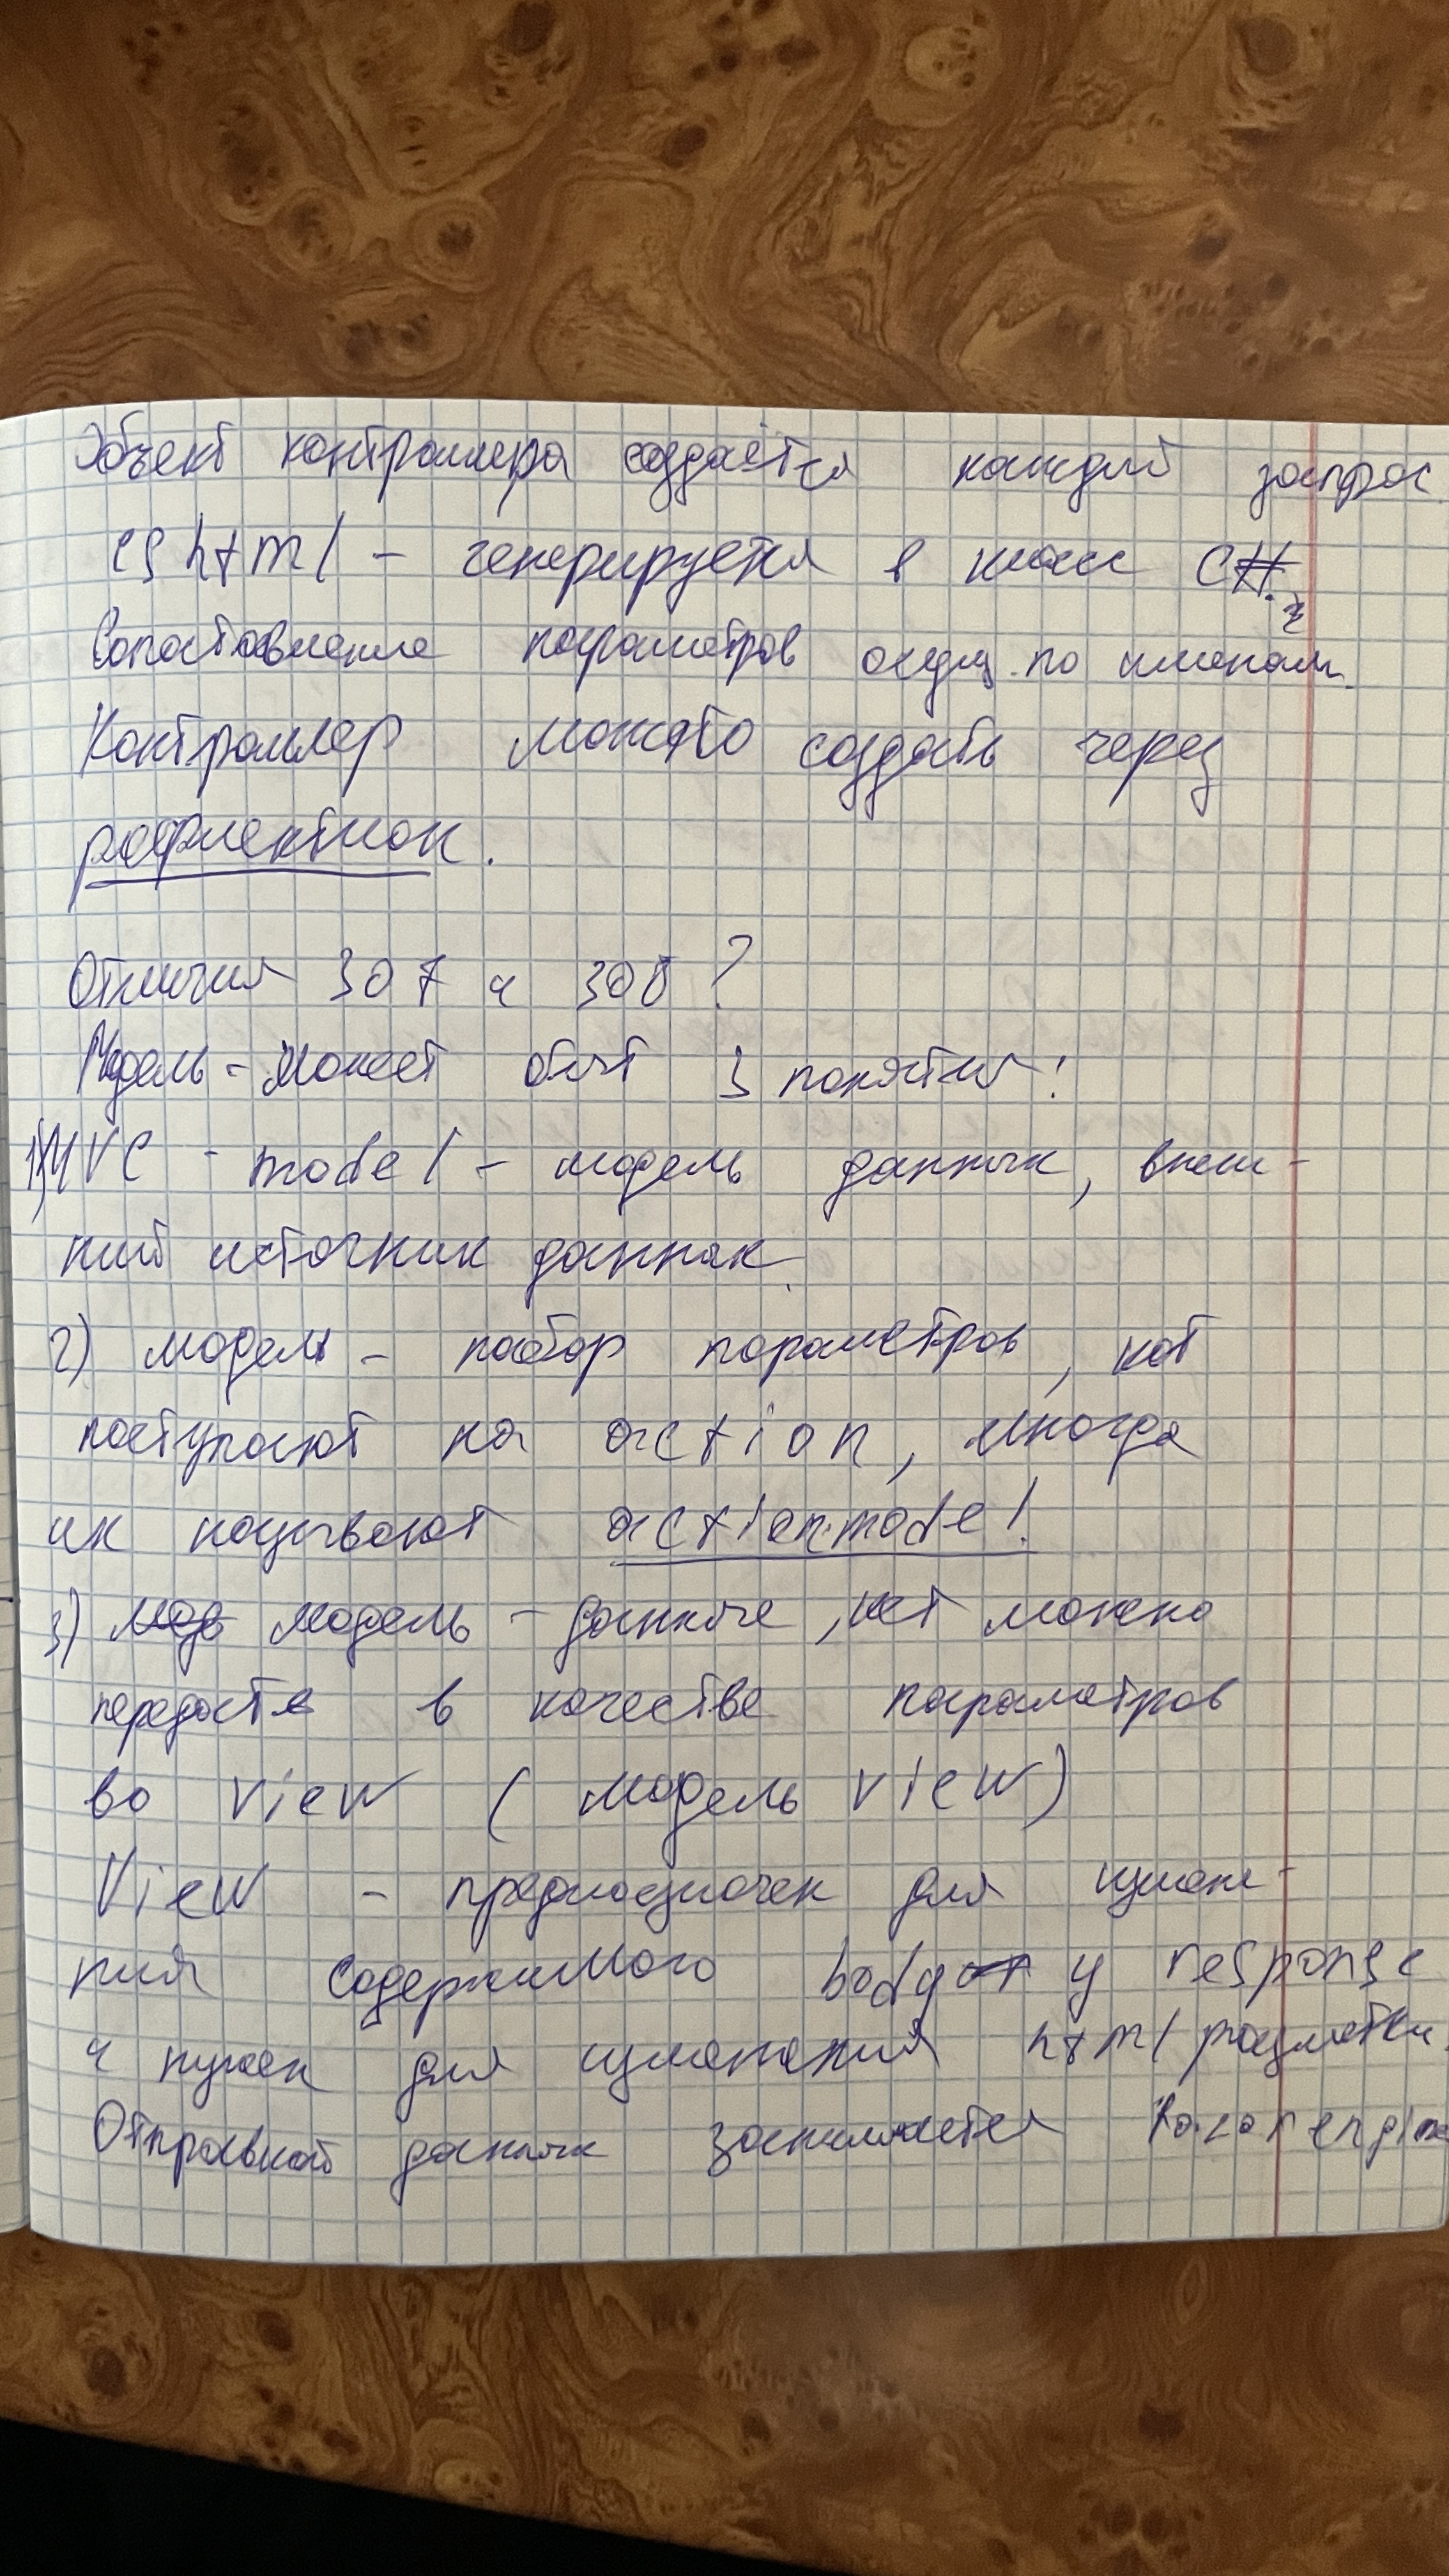 Объект контроллера создаётся каждый запрос
cshtml - генерируется в класс C#.
Сопоставление параметров осущ. по именам.
Контроллер можно создать через
рефлектион.
Отличия 307 и 308?
Модель - Может быть 3 понятия:
1) MVC - model - модель данных, внеш-
ний источник данных.
2) модель - набор параметров, кот
поступают на action, иногда
их называют actionmodel.
3) модель - данные, кот можно
передать в качестве параметров
во view (модель view)
View - предназначен для измене-
ния содержимого body у response
и нужен для изменения html разметки.
Отправкой данных занимается Razor engine